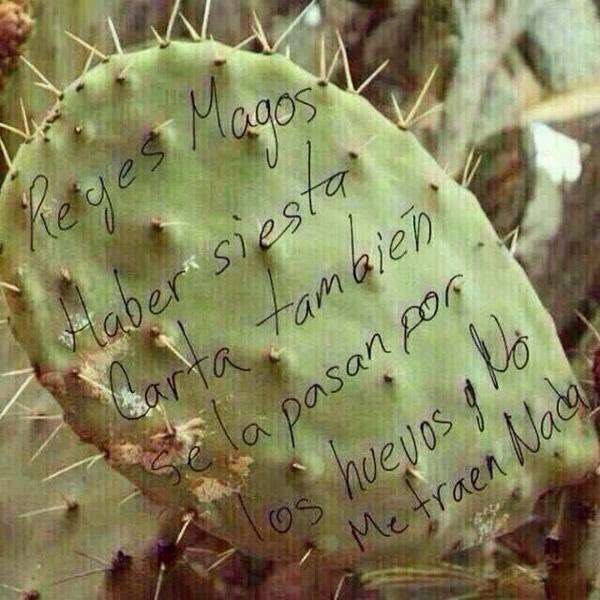 Reyes Magos
Haber siesta
Carta también
se la pasan por
los huevos y No
Me traen Nada